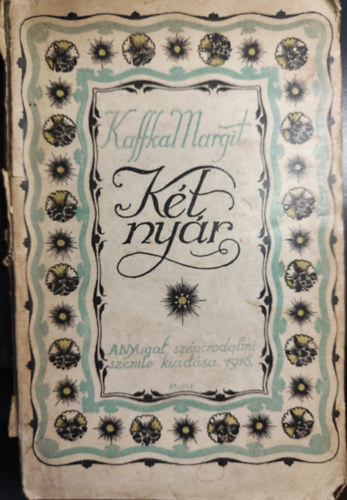 Kaffka Margit
Két
nyár
A Nyugat szépirodalmi
szemle kiadása 1916.